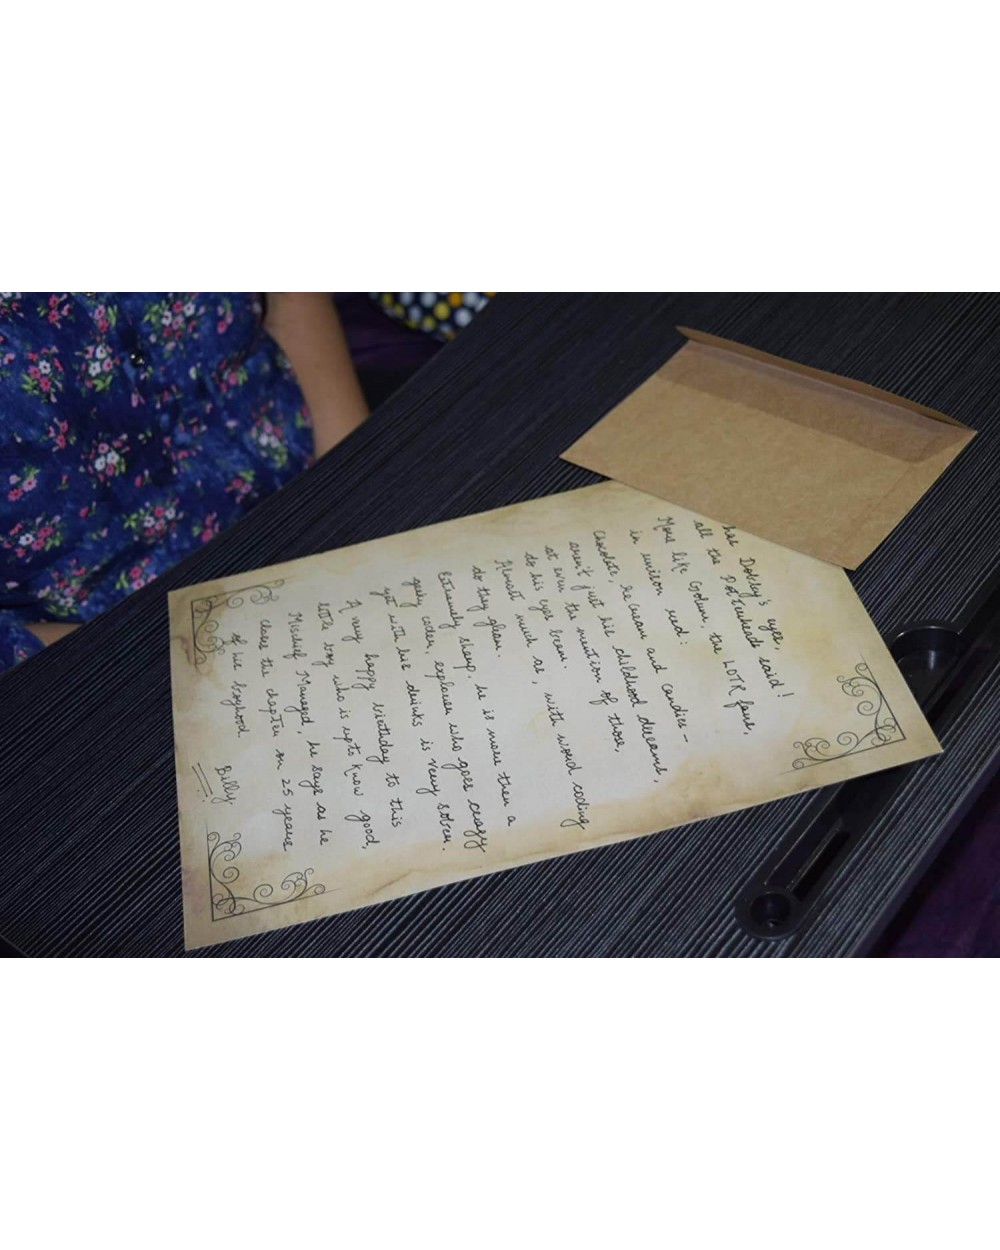 has Dobby's eyes,
all the Potterheads said!
More like Golum, the LOTR fans,
in unison red:
Chocolate, Ice cream and candies -
aren't just his childhood dreams,
at even the mention of those,
do his eyes beam.
Almost much as, with word coding
do they gleam.
Extremely sharp, he is more then a
geeky coder, explorer who goes crazy
yet with his drinks is very sober.
A very happy birthday to this
little boy who is upto know good,
Mischief Managed, he says as he
closes the chapter on 25 years
of his boyhood.
Billy